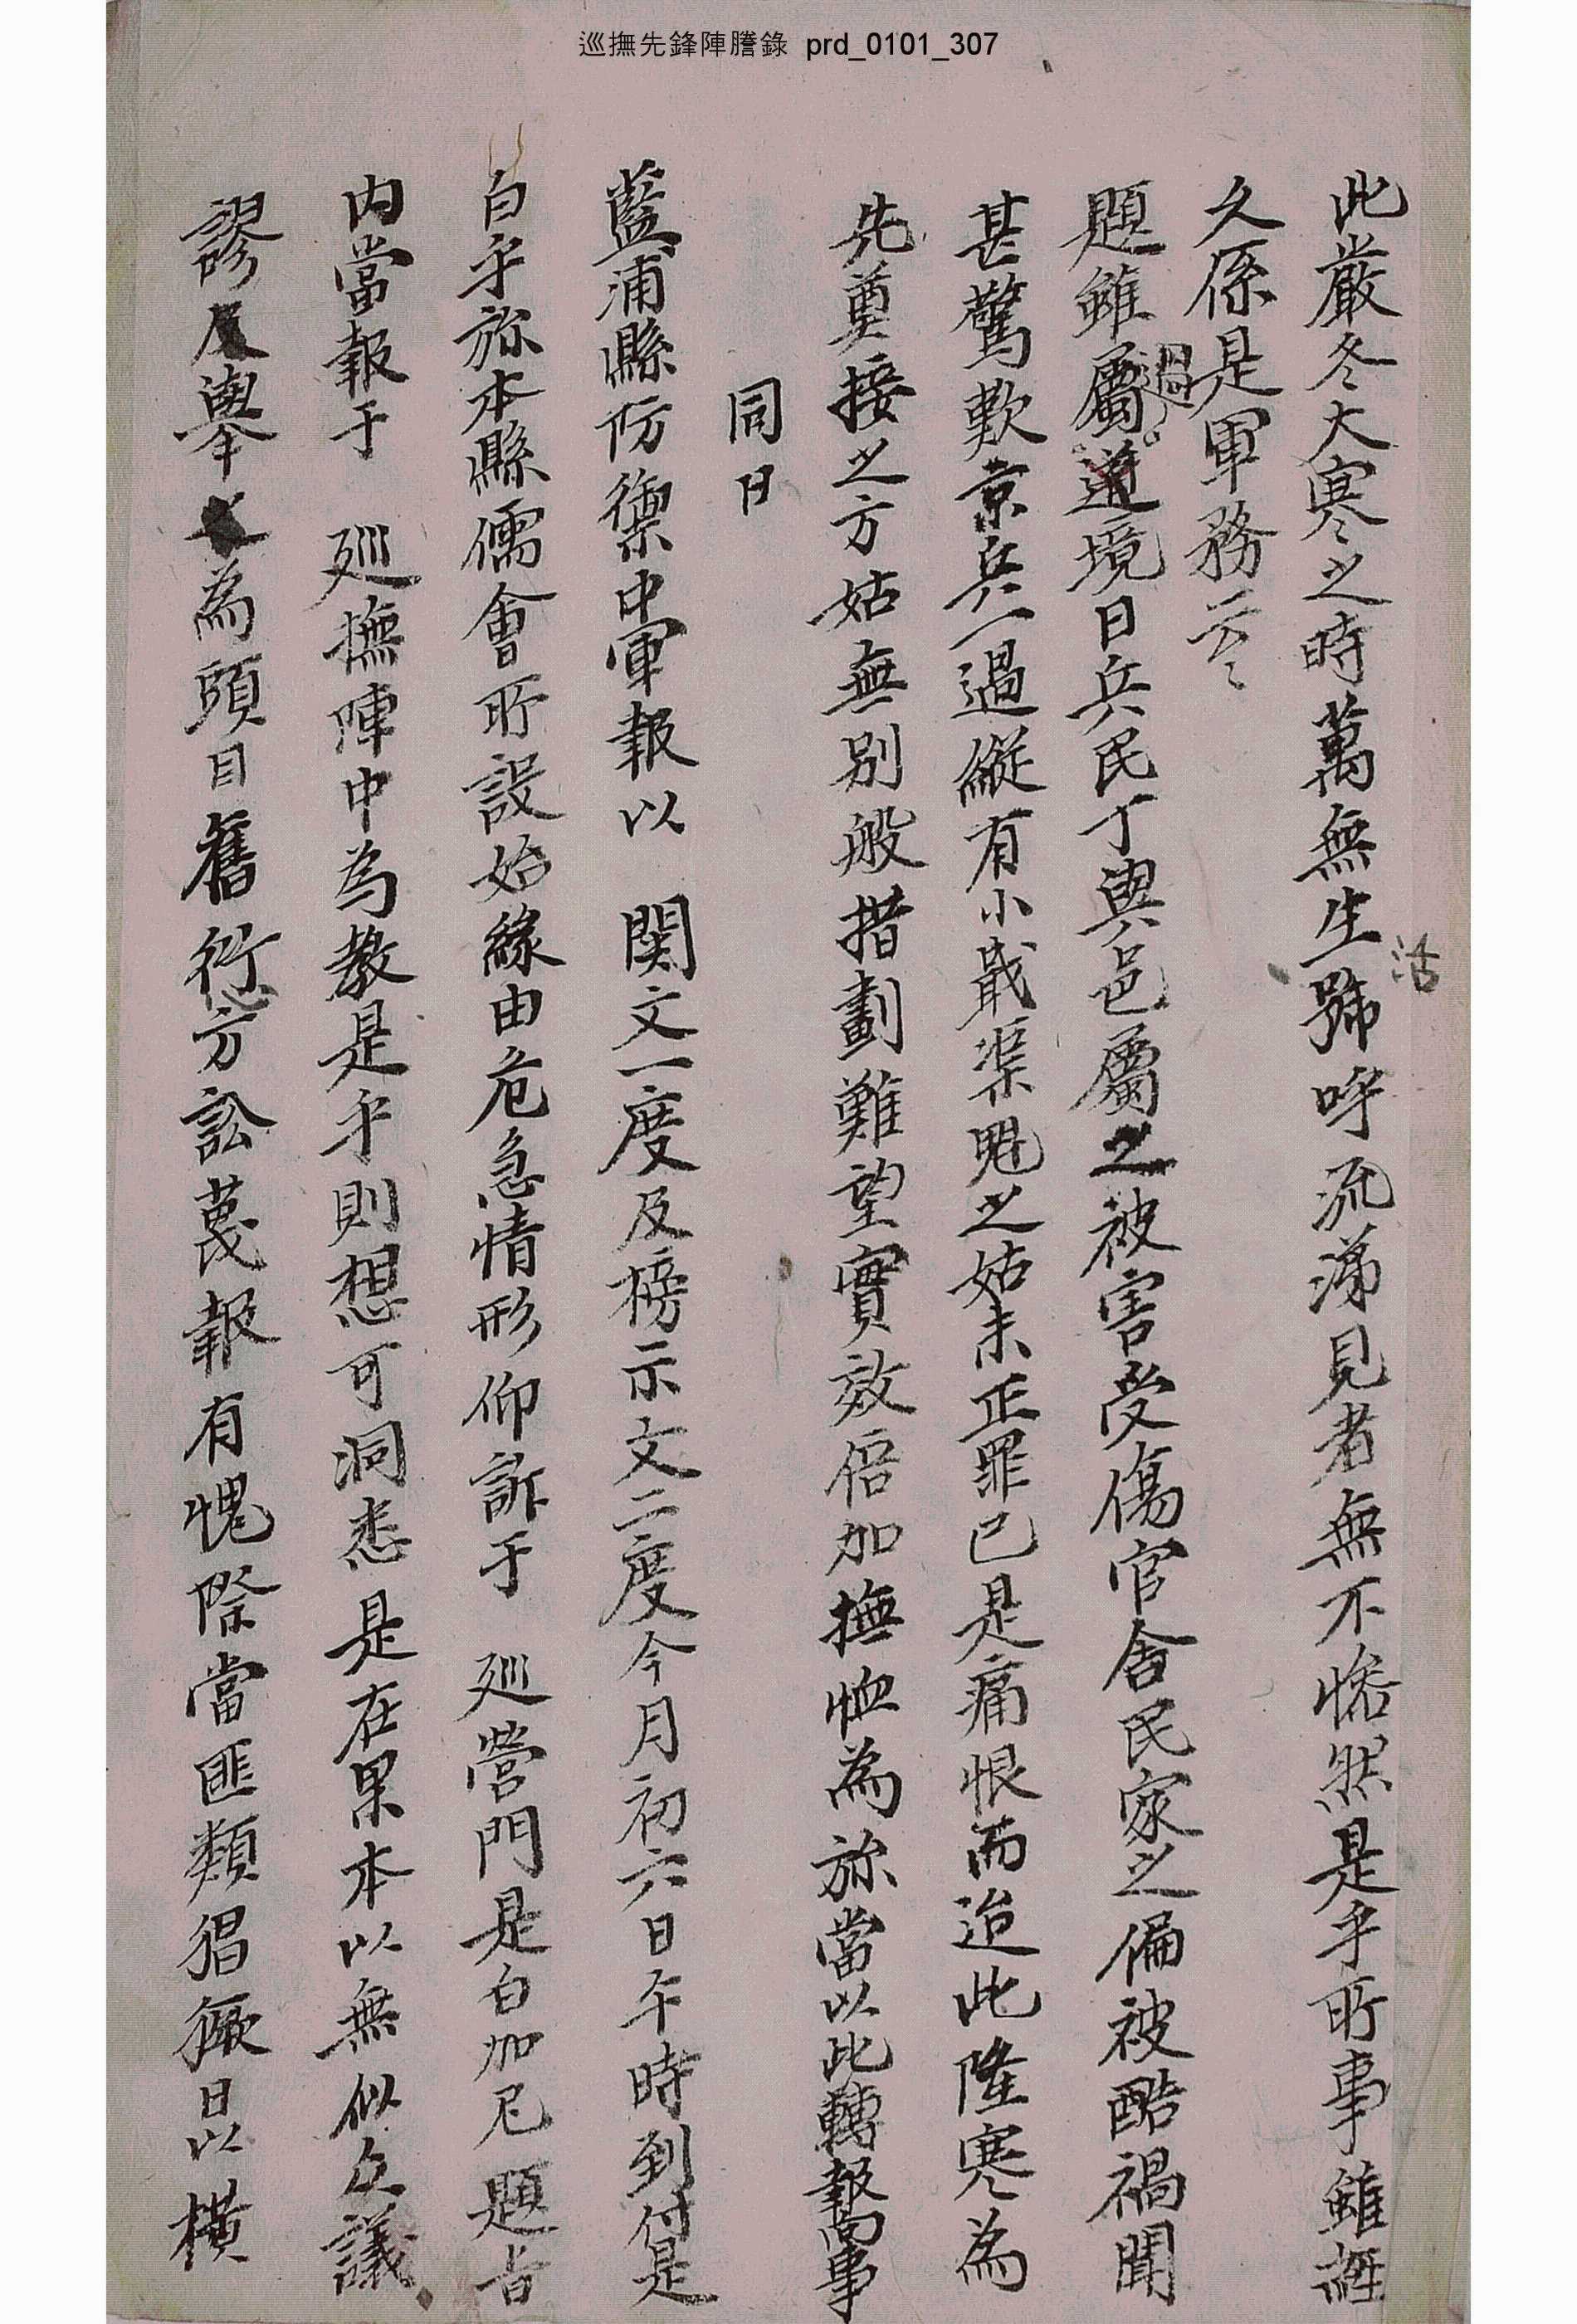 巡撫先鋒陣謄錄 prd_0101_307
此嚴冬大寒之時萬無生活號呼流涕見者無不慘然是乎所事雖經
久係是軍務云云
題雖屬過道境日兵民丁輿邑屬之被害受傷官舍民家之偏被酷禍聞
甚驚歎京兵一過縱有小戢渠魁之姑未正罪已是痛恨而迨此隆寒為
先奠接之方姑無別般措劃難望實效倍加撫恤為旀當以此轉報向事
同日
藍浦縣防禦中軍報以 関文一度及榜示文二度今月初六日午時到付是
白乎旀本縣儒會所設始緣由危急情形仰訴于 廵營門是白加尼題旨
內當報于 廵撫陣中為敎是乎則想可洞悉是在果本以無似立議
謬擧為頭目舊衍方訟蔑報有愧際當匪類猖獗日以橫